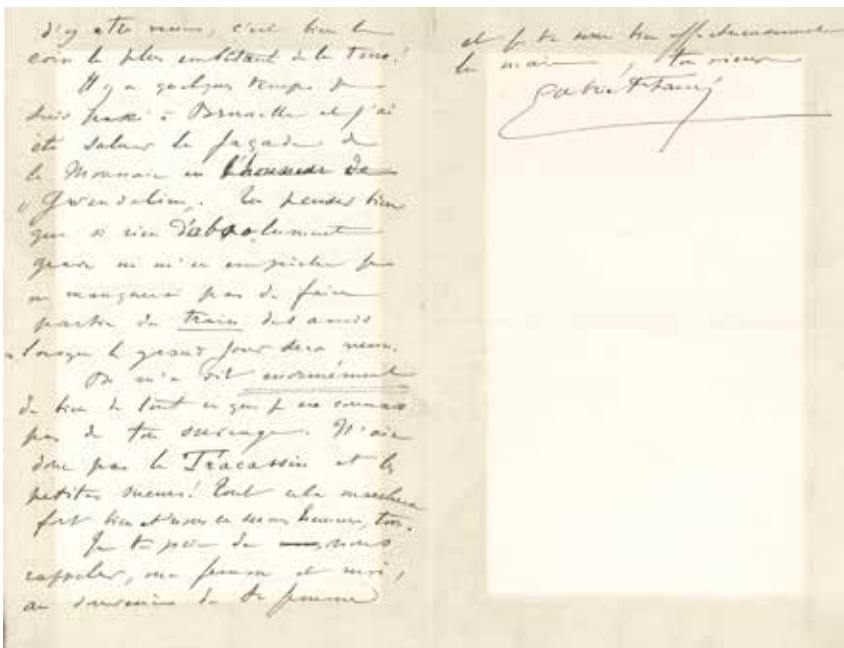 d'y être venu, c'est bien le
coin le plus embêtant de la Terre!
Il y a quelques temps je
suis passé à Bruxelles et j'ai
été saluer la façade de
la Monnaie en l'honneur de
"Gwendoline". Tu penses bien
que si rien d'absolument
grave ne m'en empêche je
ne manquerai pas de faire
partie du train des amis
lorsque le grand jour sera venu.
On m'a dit énormément
de bien de tout ce que je ne connais
pas de ton ouvrage. N'aie
donc pas le Tracassin et les
petites sueurs! Tout cela marchera
fort bien et nous en serons heureux, tous.
Je te prie de nous
rappeler, ma femme et moi,
au souvenir de ta femme
et je te serre bien affectueusement
la main, ton vieux
Gabriel Fauré